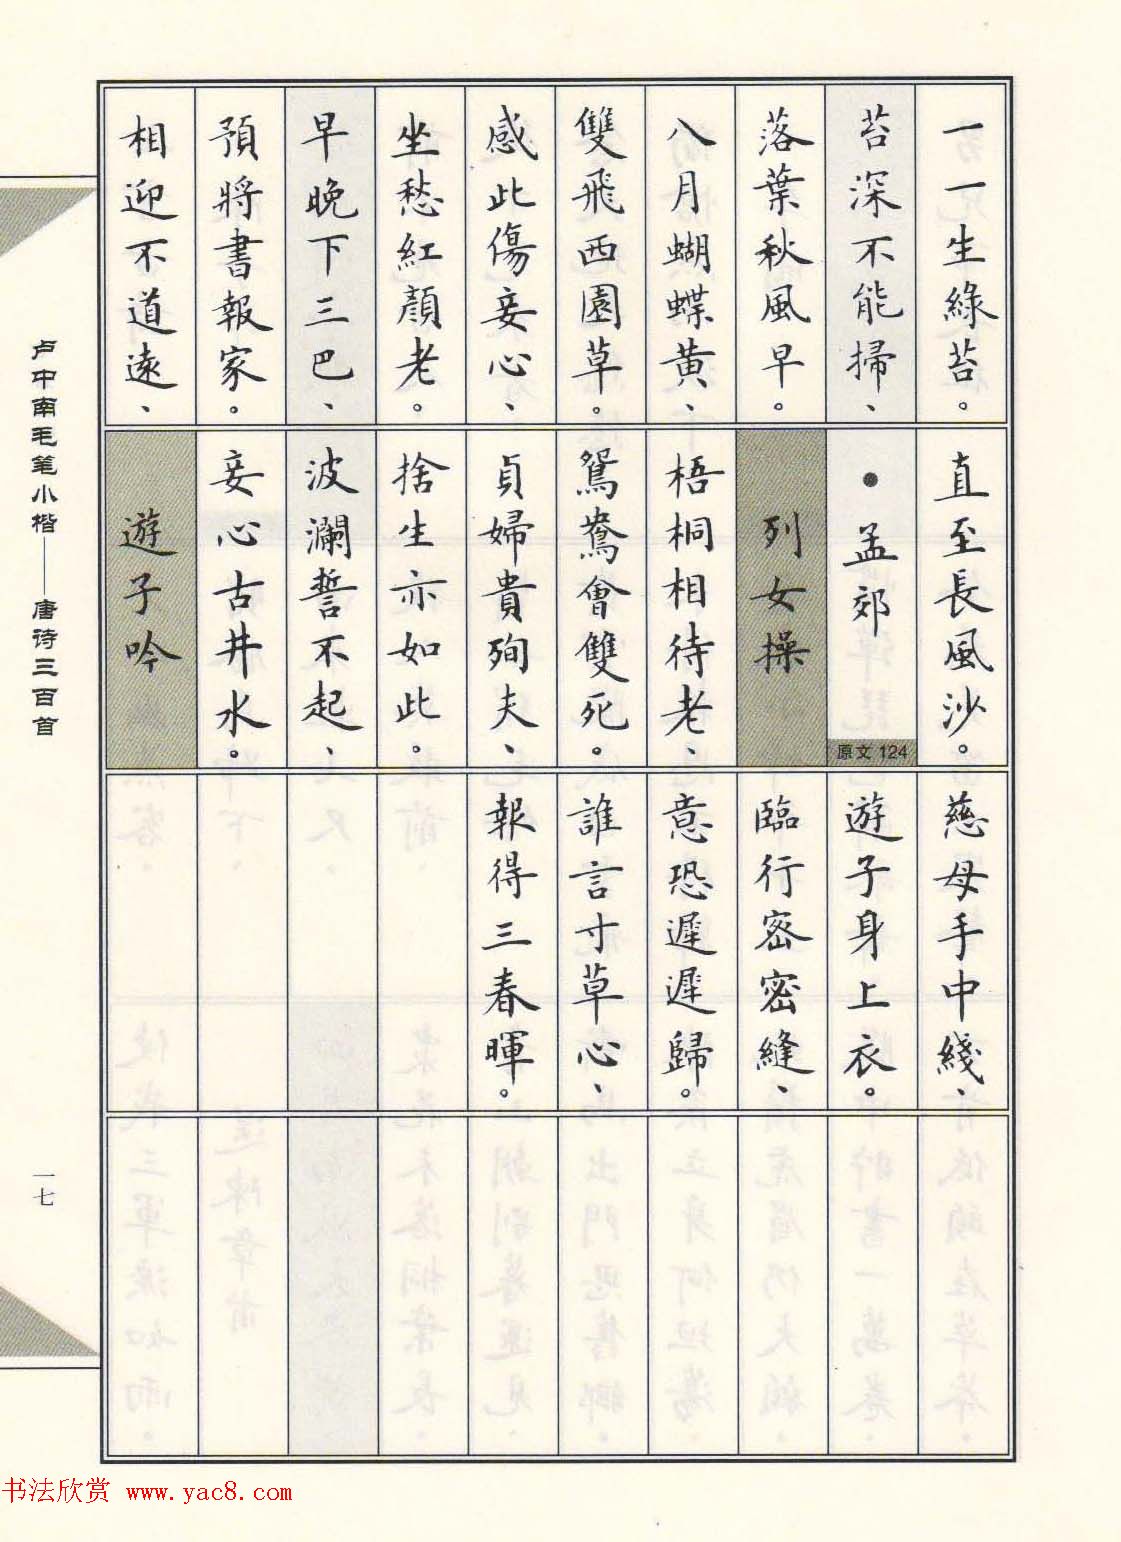 一一生綠苔。
苔深不能掃、
落葉秋風早。
八月蝴蝶黄、
雙飛西園草。
感此傷妾心、
坐愁紅顏老。
早晚下三巴、
預將書報家。
相迎不道遠、
直至長風沙。
•孟郊
原文 124
列女操
梧桐相待老、
鴛鴦會雙死。
貞婦貴殉夫、
捨生亦如此。
波瀾誓不起、
妾心古井水。
遊子吟
慈母手中綫、
遊子身上衣。
臨行密密縫、
意恐遲遲歸。
誰言寸草心、
報得三春暉。
卢中南毛笔小楷——唐诗三百首
一七
书法欣赏 www.yac8.com